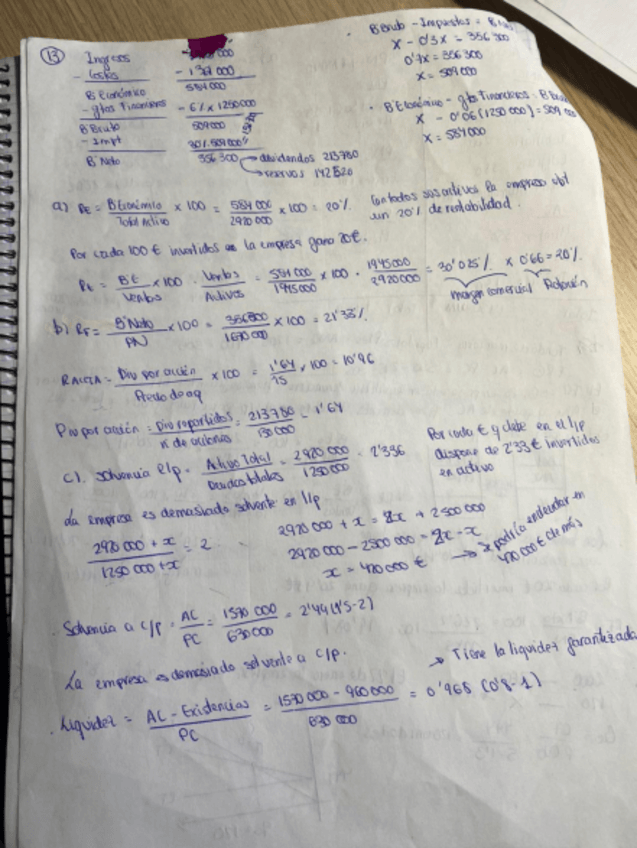 13
Ingresos
- Costes - 1361 000
B Económico 584 000
- gtos Financieros - 6% x 1250000
B Bruto 509000
- Impt 30% 509000
B Neto 356 300 → dividendos 213780
→ reservas 142520
· B Bruto - Impuestos = B
x - 0'3x = 356 300
0'7x = 356300
x = 509000
· B Económico - gtos Financieros = B
x - 0'06 (1250 000) = 509 000
x = 584000
a) RE = B Económico / Total Activo x 100 = 584 000 / 2920 000 x 100 = 20%
Con todos sus activos la empresa obt
un 20% de rentabilidad.
Por cada 100 € invertidos la empresa gana 20€.
RE = BE / Ventas x 100 · Ventas / Activos = 584 000 / 1945000 x 100 · 1945000 / 2920000 = 30'025% x 0'66 = 20%
margen comercial Rotación
b) RF = B Neto / PN x 100 = 356300 / 1670 000 x 100 = 21'33%
Div por acción / Precio de aq x 100 = 1'64 / 15 x 100 = 10'96
Div por acción = Div repartidos / nº de acciones = 213780 / 130000 = 1'64
c). Solvencia l/p = Activo Total / Deudas totales = 2920 000 / 1250 000 = 2'336
Por cada € q debe en el l/p
dispone de 2'33 € invertidos
en activo
La empresa es demasiado solvente en l/p
2920 000 + x / 1250 000 + x = 2
2920 000 + x = 2x + 2500 000
2920 000 - 2500 000 = 2x - x
x = 420 000 € → podría endeudar en
420 000 € de más
· Solvencia a c/p = AC / PC = 1570 000 / 630 000 = 2'49 (1'5-2)
La empresa es demasiado solvente a c/p.
· Liquidez = AC - Existencias / PC = 1570 000 - 960 000 / 630 000 = 0'968 (0'8-1)
→ Tiene la liquidez garantizada